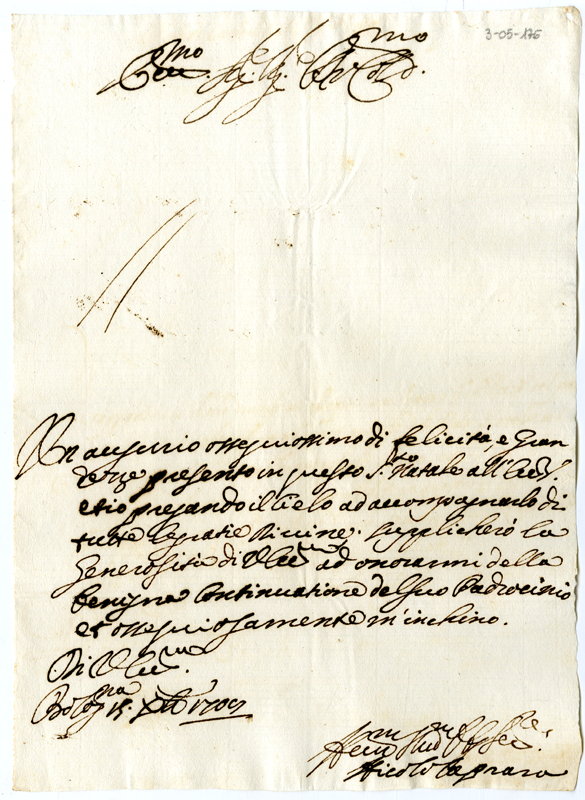 3-05-176
Em.mo Sig.r Sig.r e Pr'on Col.mo
Un augurio ossequiosissimo di felicità, e Gran
dezze presento in questo S.to Natale all'
et io pregando il Cielo ad accompagnarlo di
tutte le gratie Divine. supplicherò la
Generosità di V Em.za ad onorarmi della
benigna Continuatione del suo Padrocinio
et ossequiosamente m'inchino.
Di V Em.za
Bologna 15. Xbre 1709
Hum
Nicolò Caprara